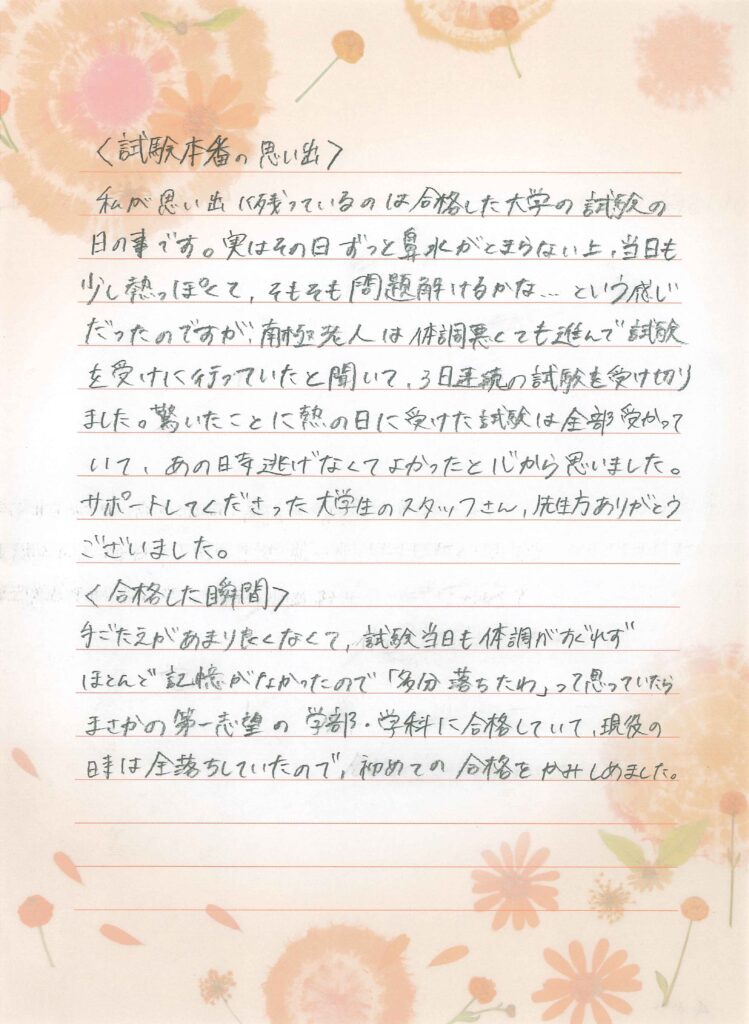 〈試験本番の思い出〉
私が思い出に残っているのは合格した大学の試験の
日の事です。実はその日ずっと鼻水がとまらない上、当日も
少し熱っぽくて、そもそも問題解けるかな…という感じ
だったのですが、南極老人は体調悪くても進んで試験
を受けに行っていたと聞いて、3日連続の試験を受け切り
ました。驚いたことに熱の日に受けた試験は全部受かって
いて、あの日時逃げなくてよかったと心から思いました。
サポートしてくださった大学生のスタッフさん、先生方ありがとう
ございました。
〈合格した瞬間〉
手ごたえがあまり良くなくて、試験当日も体調がすぐれず
ほとんど記憶がなかったので「多分落ちたわ」って思っていたら
まさかの第一志望の学部・学科に合格していて、現役の
時は全落ちしていたので、初めての合格をかみしめました。